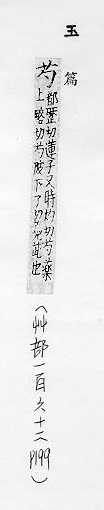 玉篇
芍
都歷切蓮子又時灼切芍藥
上略切芍陂下了切鳧茈也
(艸部一百六十二 P199)